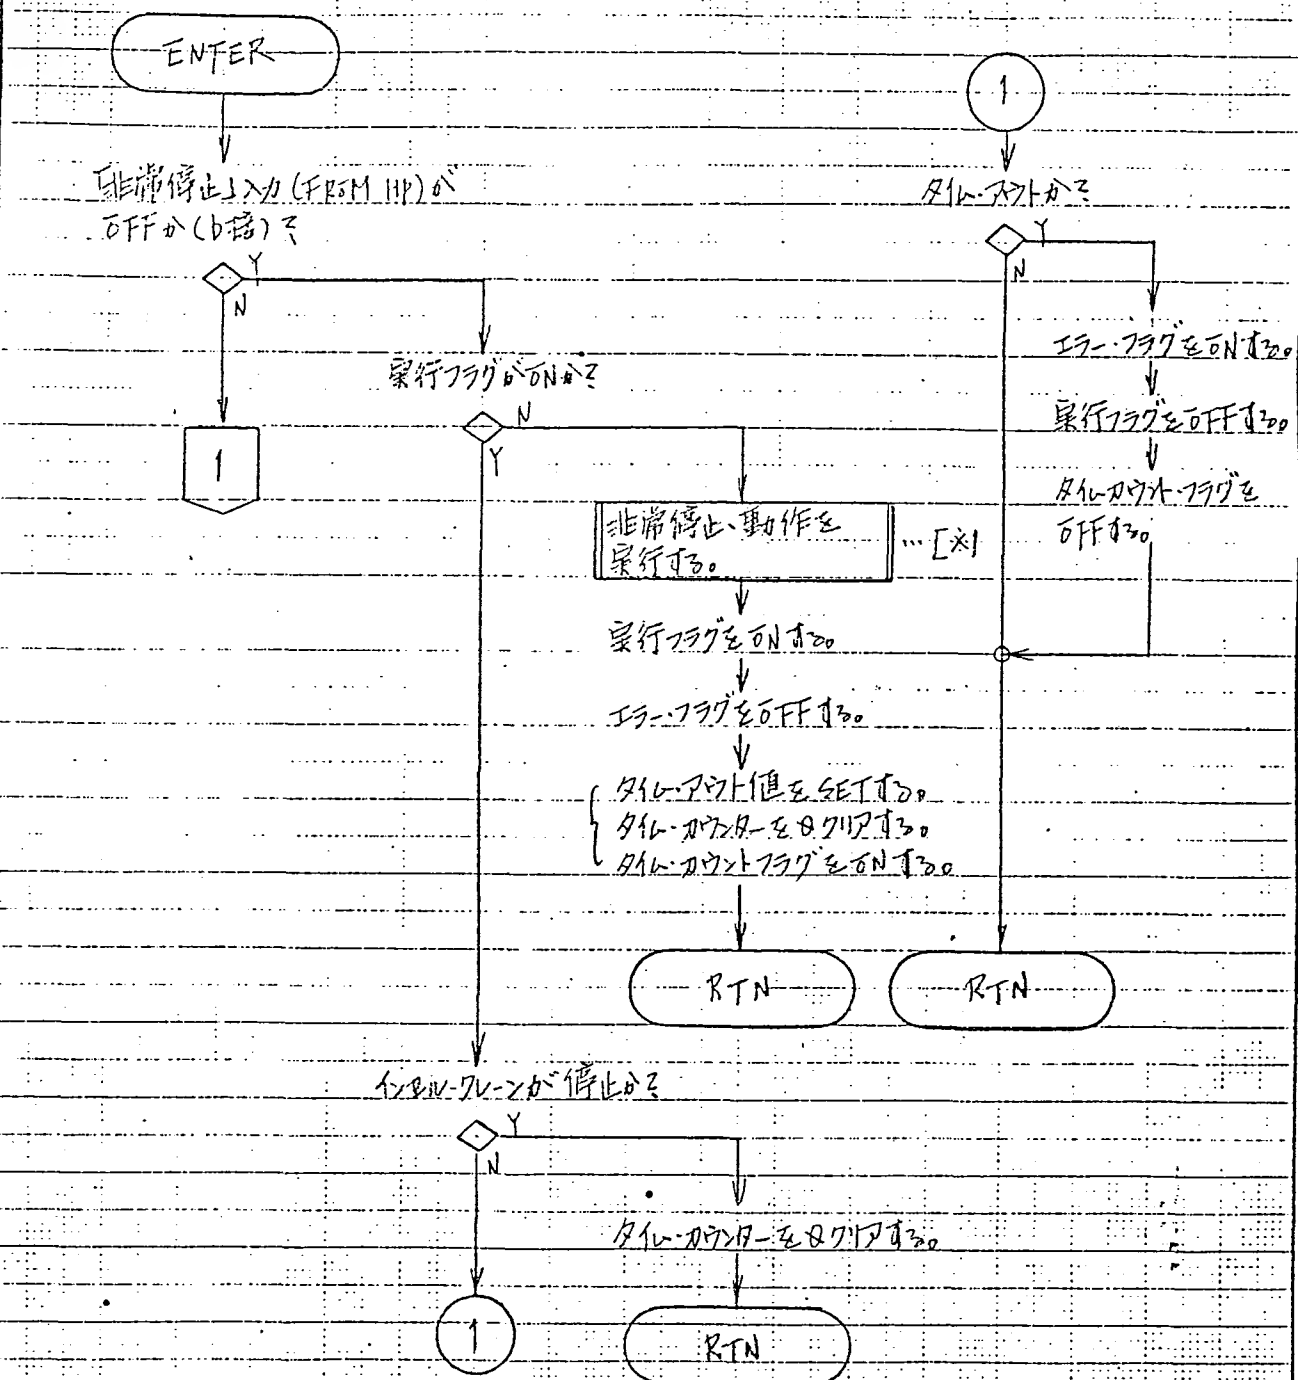 ENTER
「非常停止」入力(FROM HP)が
OFFか(b接)?
Y
N
1
実行フラグがONか?
N
Y
非常停止、動作を
実行する。
…[※]
実行フラグをONする。
エラー・フラグをOFFする。
タイム・アウト値をSETする。
タイム・カウンターを0クリアする。
タイム・カウントフラグをONする。
RTN
インセル・クレーンが停止か?
Y
N
タイム・カウンターを0クリアする。
1
RTN
1
タイム・アウトか?
Y
N
エラー・フラグをONする。
実行フラグをOFFする。
タイムカウント・フラグを
OFFする。
RTN